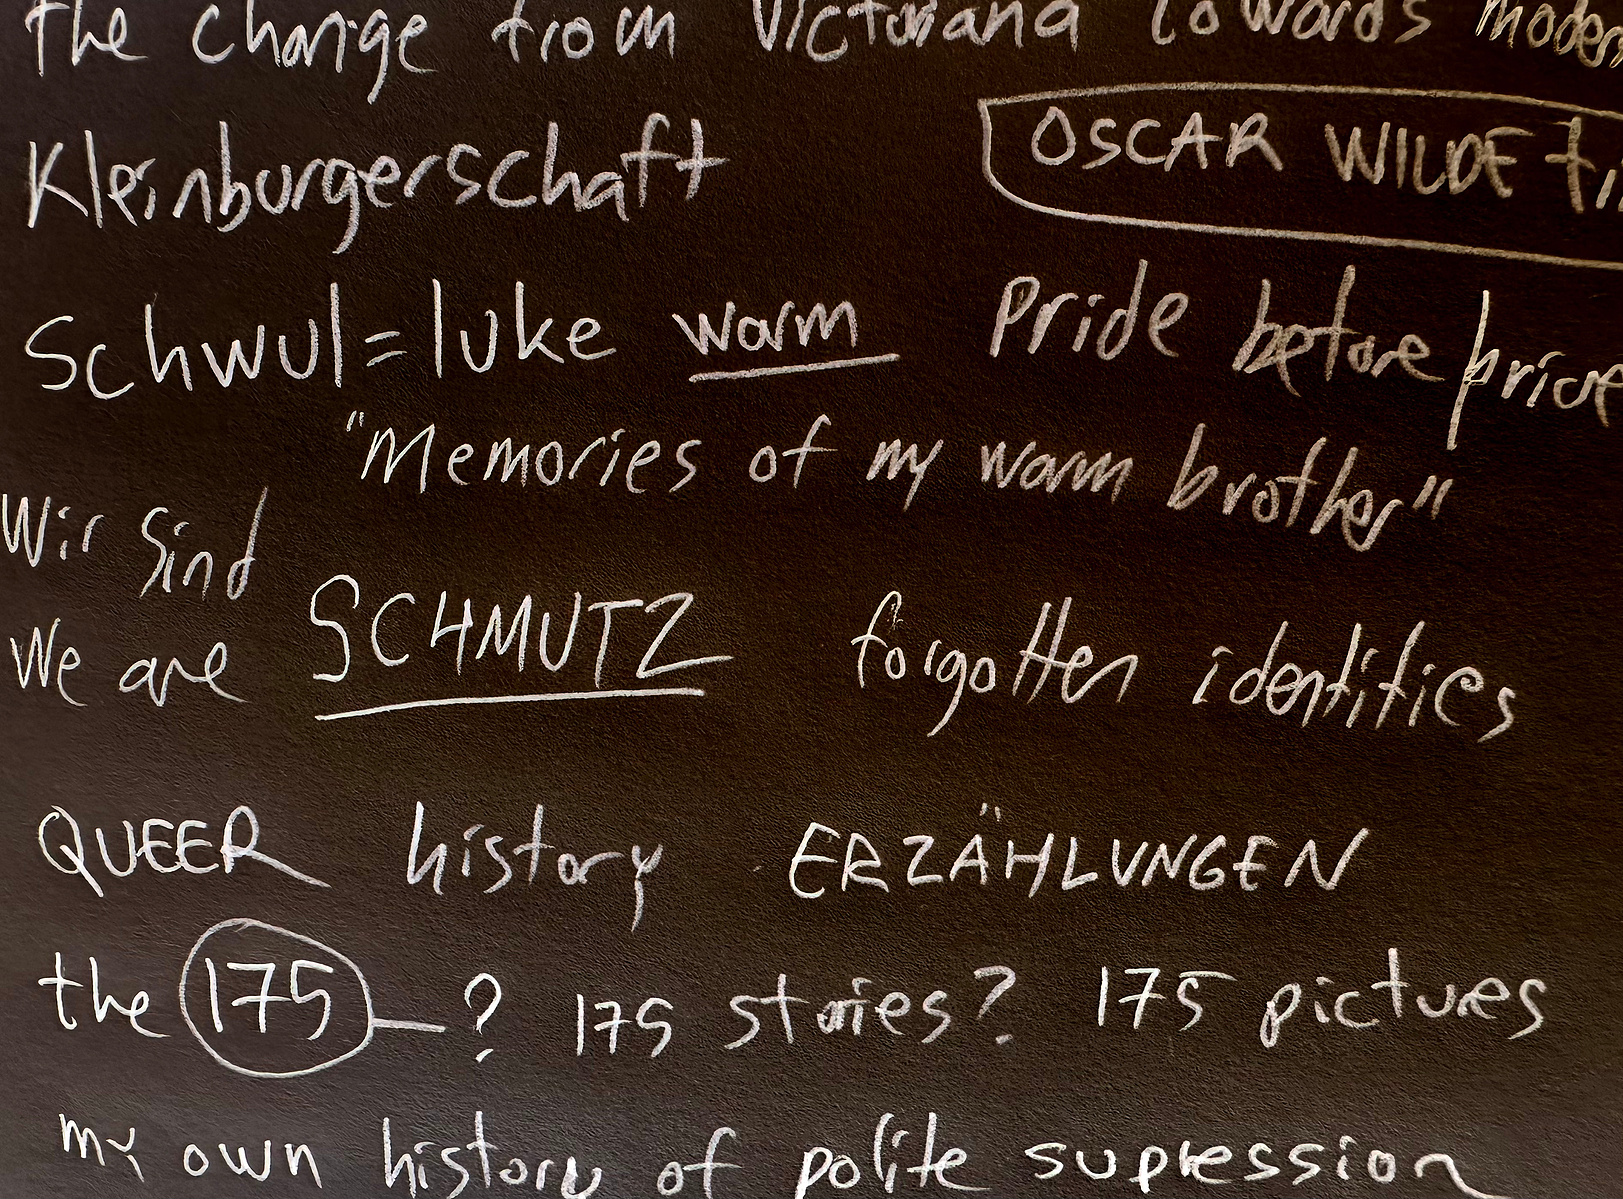 the change from Victoriana towards moder
Kleinburgerschaft
OSCAR WILDE
Schwul = luke warm
Pride before
"Memories of my warm brother"
Wir sind
We are SCHMUTZ
forgotten identities
QUEER history ERZÄHLUNGEN
the 175 — ? 175 stories? 175 pictures
my own history of polite supression